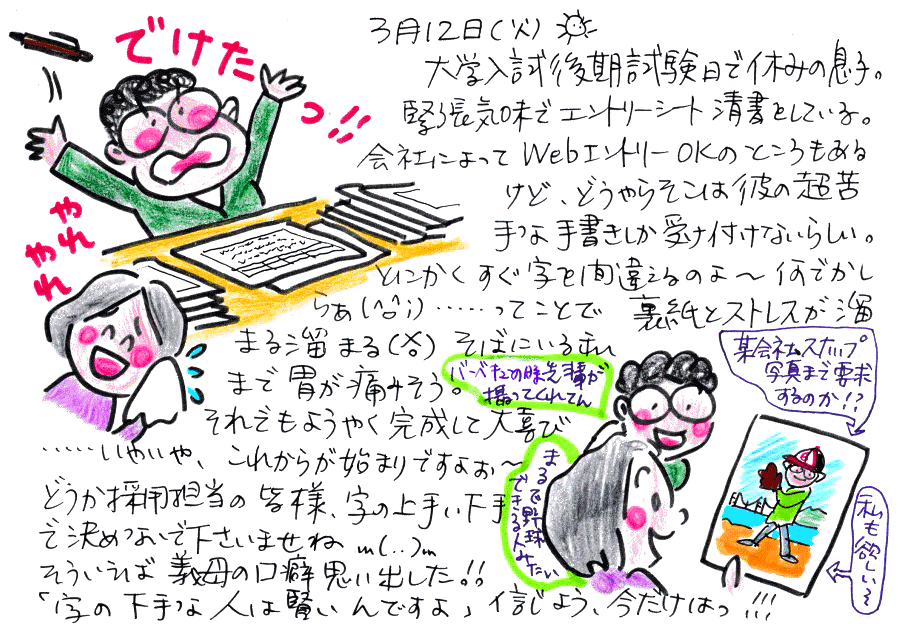 3月12日(火)
大学入試後期試験日で休みの息子。
緊張気味でエントリーシート清書をしている。
会社によってWebエントリーOKのところもある
けど、どうやらそこは彼の超苦
手な手書きしか受け付けないらしい。
とにかくすぐ字を間違えるのよ〜何でかし
らぁ(^^;)……ってことで 裏紙とストレスが溜
まる溜まる(>。<) そばにいる
まで胃が痛みそう。
それでもようやく完成して大喜び
……いやいや、これからが始まりですよぉ〜
どうか採用担当の皆様、字の上手い下手
で決めつないで下さいませね m(..)m
そういえば義母の口癖思い出した!!
「字の下手な人は賢いんですよ」信じよう、今だけはっ!!!
でけたっ!!
やれやれ
バーベキューの時先輩が
撮ってくれてん
まるで野球
できる人みたい
某会社スナップ
写真まで要求
するのか!?
私も欲しい〜